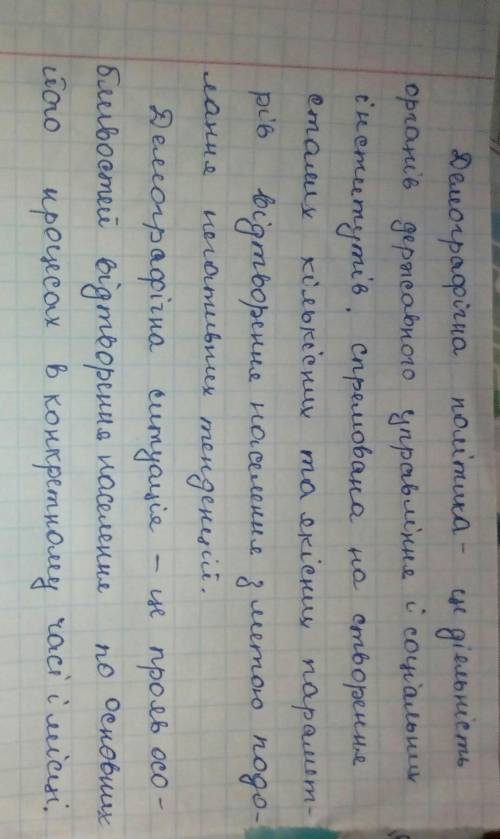 Демографічна політика - це діяльність
органів державного управління і соціальних
інститутів, спрямована на створення
сталих кількісних та якісних парамет-
рів відтворення населення з метою подо-
лання негативних тенденцій.
Демографічна ситуація - це прояв осо-
бливостей відтворення населення по основних
його процесах в конкретному часі і місці.